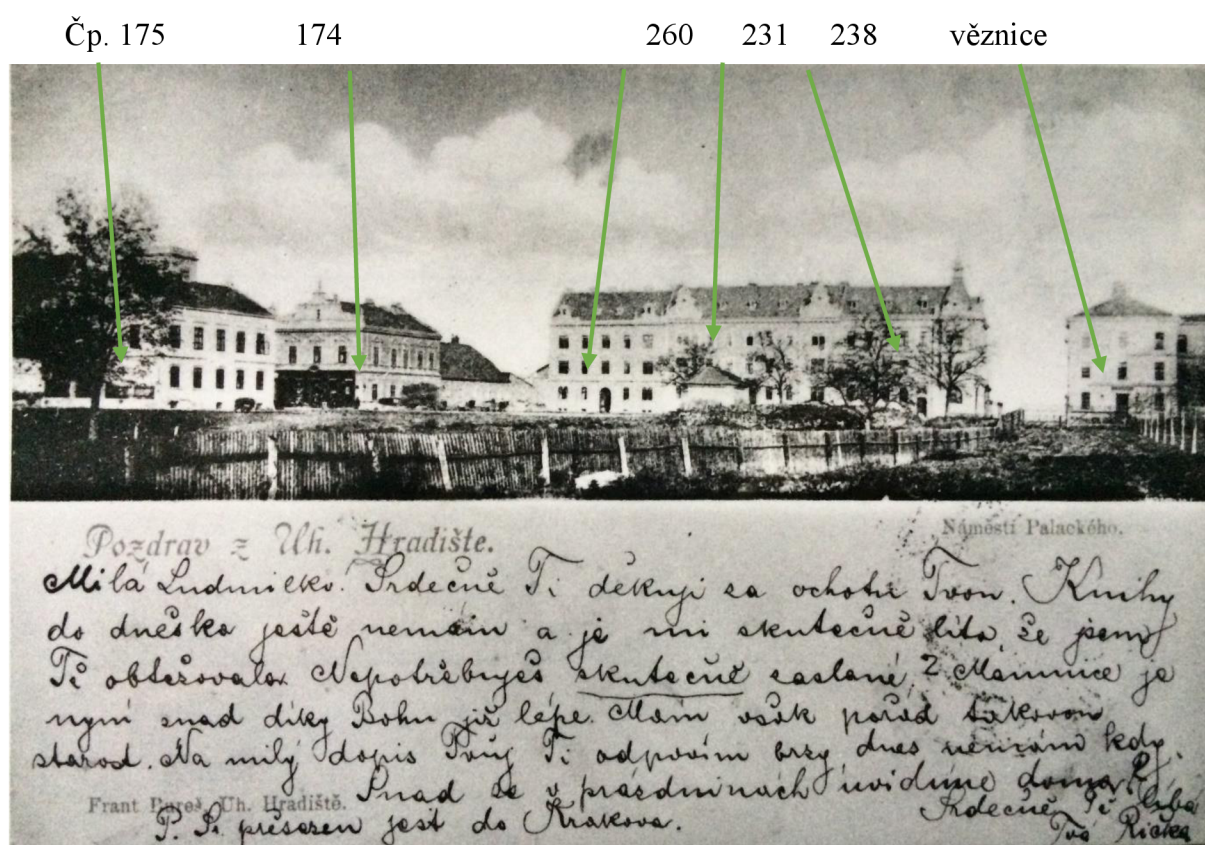 Čp. 175 174 260 231 238 věznice
Pozdrav z Uh. Hradiště.
Náměstí Palackého.
Milá Ludmilko! Srdečně Ti děkuji za ochotu Tvou. Knihy
do dneška ještě nemám a je mi skutečně líto, že jsem
Tě obtěžovala. Nepotřebuješ skutečně zaslané? Mamince je
nyní snad díky Bohu již lépe. Mám však pořád takovou
starost. Na milý dopis Tvůj Ti odpovím brzy, dnes nemám kdy.
Snad se o prázdninách uvidíme doma.
Frant Bureš, Uh. Hradiště.
Srdečně Tě líbá
P. přesazen jest do Krakova.
Tvá